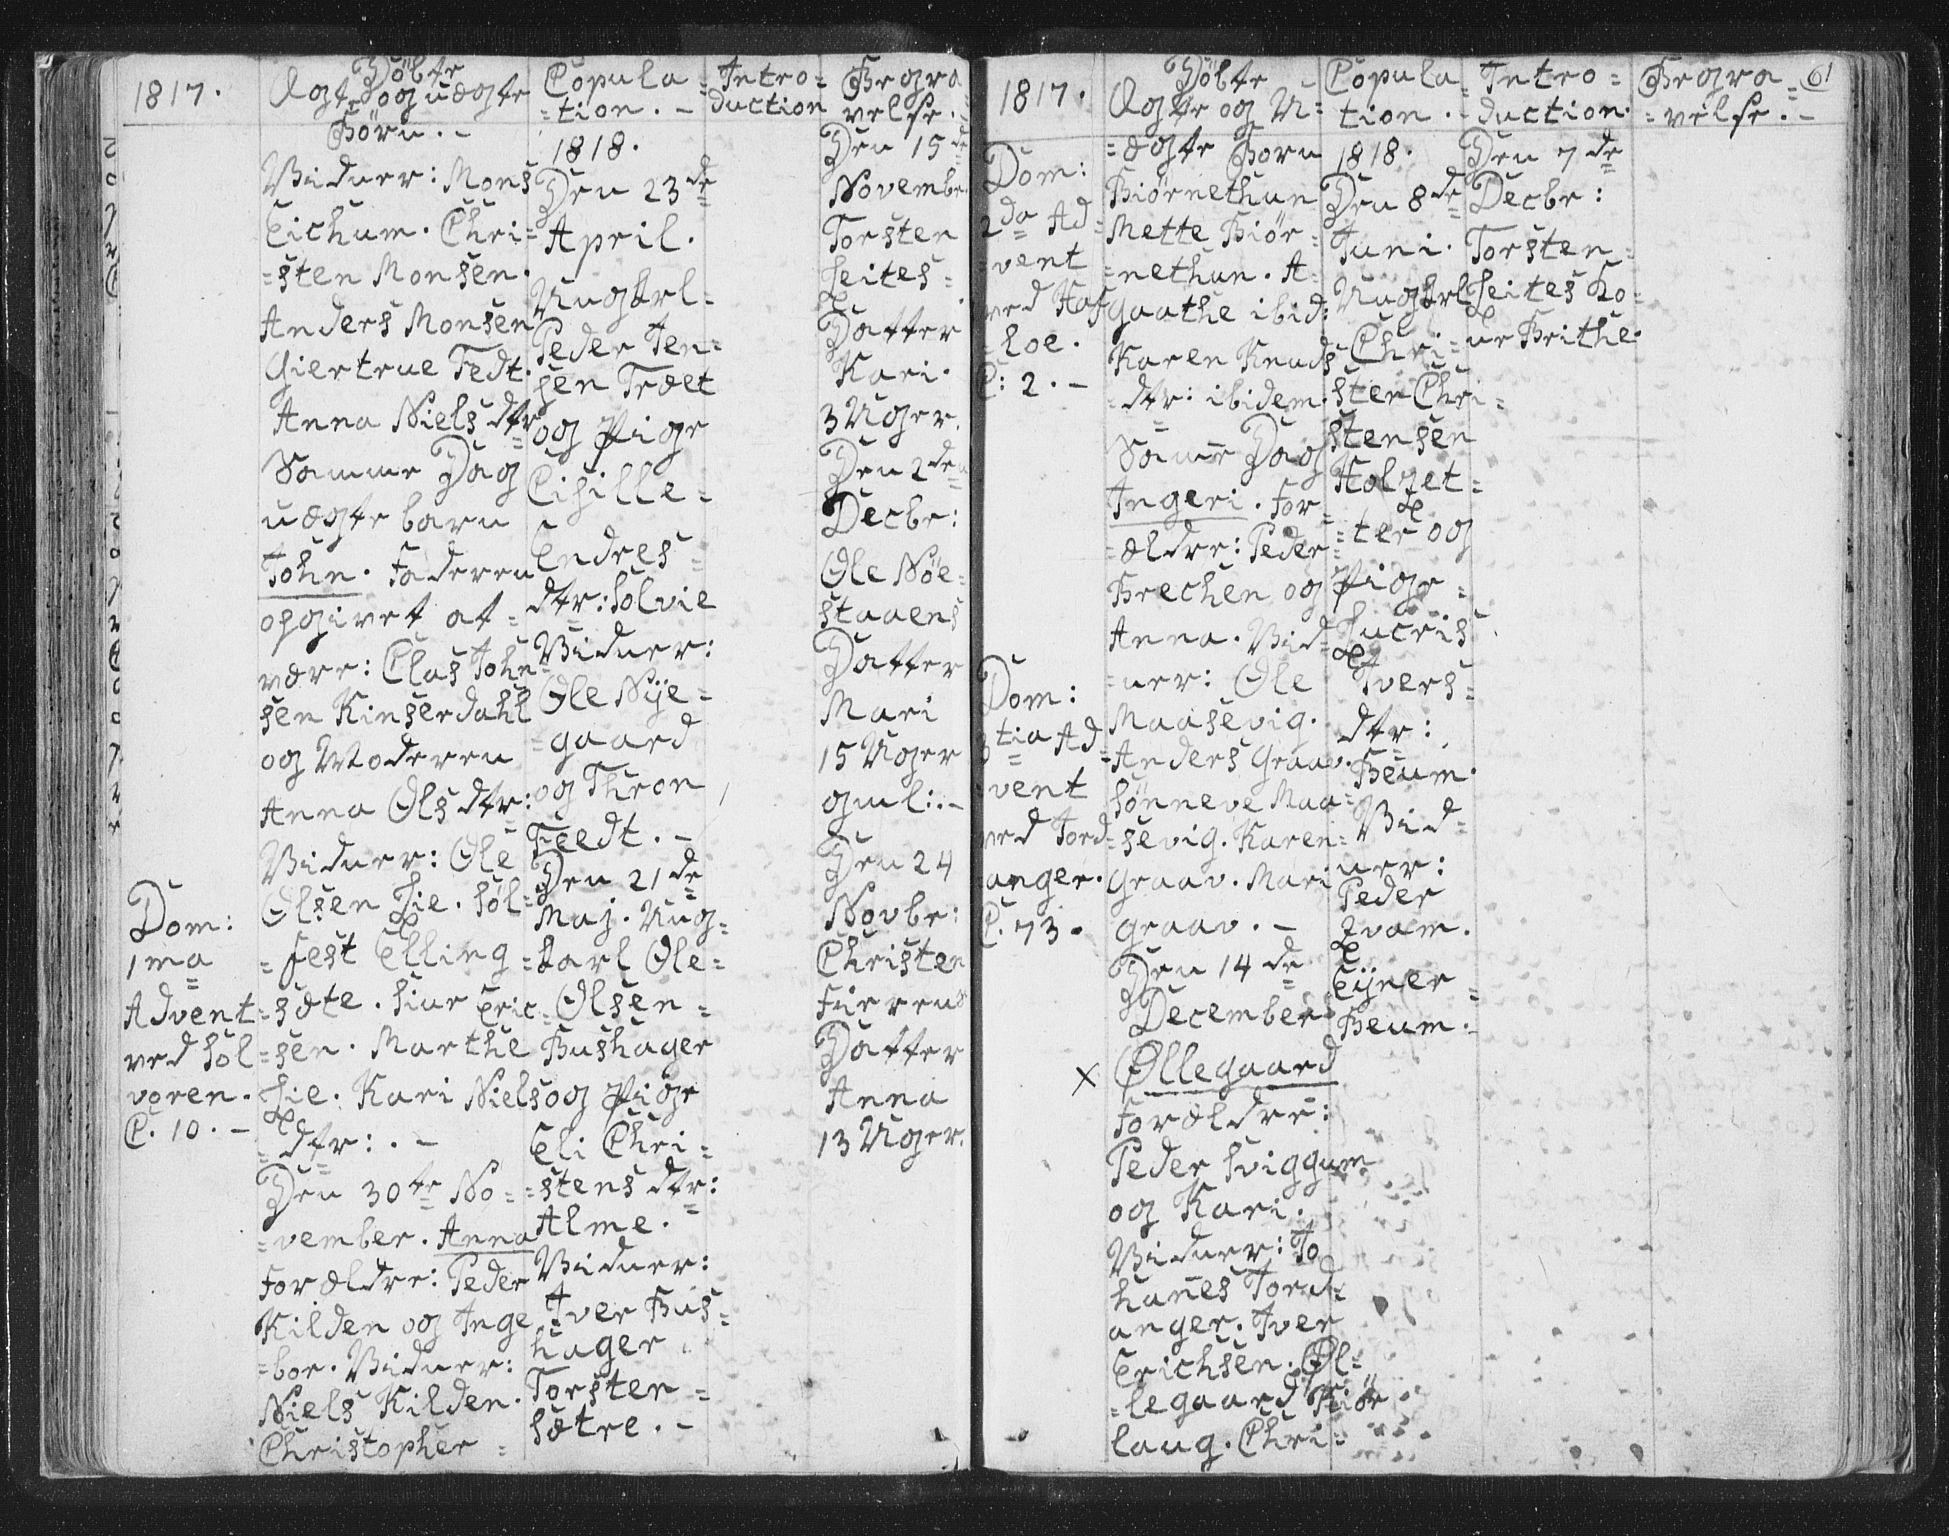 1817.
Døbte
Ægte og uægte
Børn. -
Vidner: Mons
Eichum. Chri-
=sten Monsen.
Anders Monsen
Giertrue Fedt.
Anna Niels dtr
Samme Dag
uægte barn
John. Faderen
opgivet at
være: Clas John=
sen Kinserdahl
og Moderen
Anna Ols dtr:
Vidner: Ole
Olsen Lie. Søl=
=fest Elling=
=sæte. Siur Eric=
=sen. Marthe
Lie. Kari Niels
=dtr: . -
Den 30te No=
=vember. Anna
Forældre: Peder
Kilden og Inge
=bor. Vidner:
Niels Kilden.
Christopher =
Dom:
1ma
Advent
ved Sol=
voren.
C. 10. -
Copula=
=tion. -
1818.
Den 23de
April.
Ungkrl=
Peder Jen=
sen Træet
og Pige
Cisille=
Endres=
dtr: Solvie
Vidner:
Ole Nye=
=gaard
og Thron
Feedt. -
Den 21de
Maj. Ung=
=karl Ole=
Olsen=
Bushager
og Pige
Eli Chri=
=stens dtr:
Alme.
Vidner:
Iver Bus=
hager
Torsten=
Sætre. -
Intro=
duction
Begra=
velse.
Den 15de
Novembr.
Torsten
Leites=
Datter
Kari.
3 Uger.
Den 2den
Decbr:
Ole Nøe=
staaens
Datter
Mari
15 Uger
gml: . -
Den 24
Novbr:
Christen
Fierrens
Datter
Anna
13 Uger.
1817.
Dom:
2da Ad=
vent
ved Haf=
loe.
C: 2. -
Dom:
3tia Ad=
vent
ved Jord=
anger.
C. 73.
Døbte
Ægte og U=
=ægte Born
Biørnethun
Mette Biør=
=nethun. A=
gaathe ibid:
Karen Knuds
=dtr: ibidem.
Same Dag
Ingeri. For=
=ældre: Peder
Brechen og
Anna. Vid=
=ner: Ole
Maasevig.
Anders Graav.
Sønneve Maa=
=sevig. Karen=
Graav. Mari
Graav. -
Den 14de
December
x Øllegaard
Forældre:
Peder Sviggum
og Kari.
Vidner: Jo
hanes Jord=
anger. Iver
Erichsen. Øl=
=legaard Kiør
laug. Chri=
Copula=
tion. -
1818.
Den 8de
Juni.
Ungkrl
Chri=
sten Chri=
stensen
Holzet=
=ter og
Pige=
Lucris
Ivers=
dtr:
Beum.
Vid=
ner:
Peder
Qvam.
Ejner=
Beum.
Intro=
duction.
Den 7de
Decbr:
Torsten=
Leites Ko=
ne Brithe.
Begra=
=velse. -
61